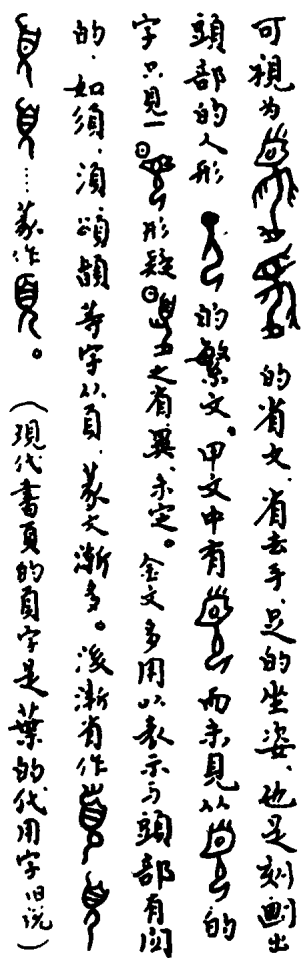 可視为 的省文。省去手、足的坐姿、也是刻劃出
頭部的人形 的繁文。甲文中有 而未見从 的
字只見一 形疑 之省異、未定。金文多用以表示与頭部有関
的、如須、湏、頌、顗等字从頁、篆文漸多。後漸省作
……篆作 。
（現代書頁的頁字是葉的代用字 旧説）